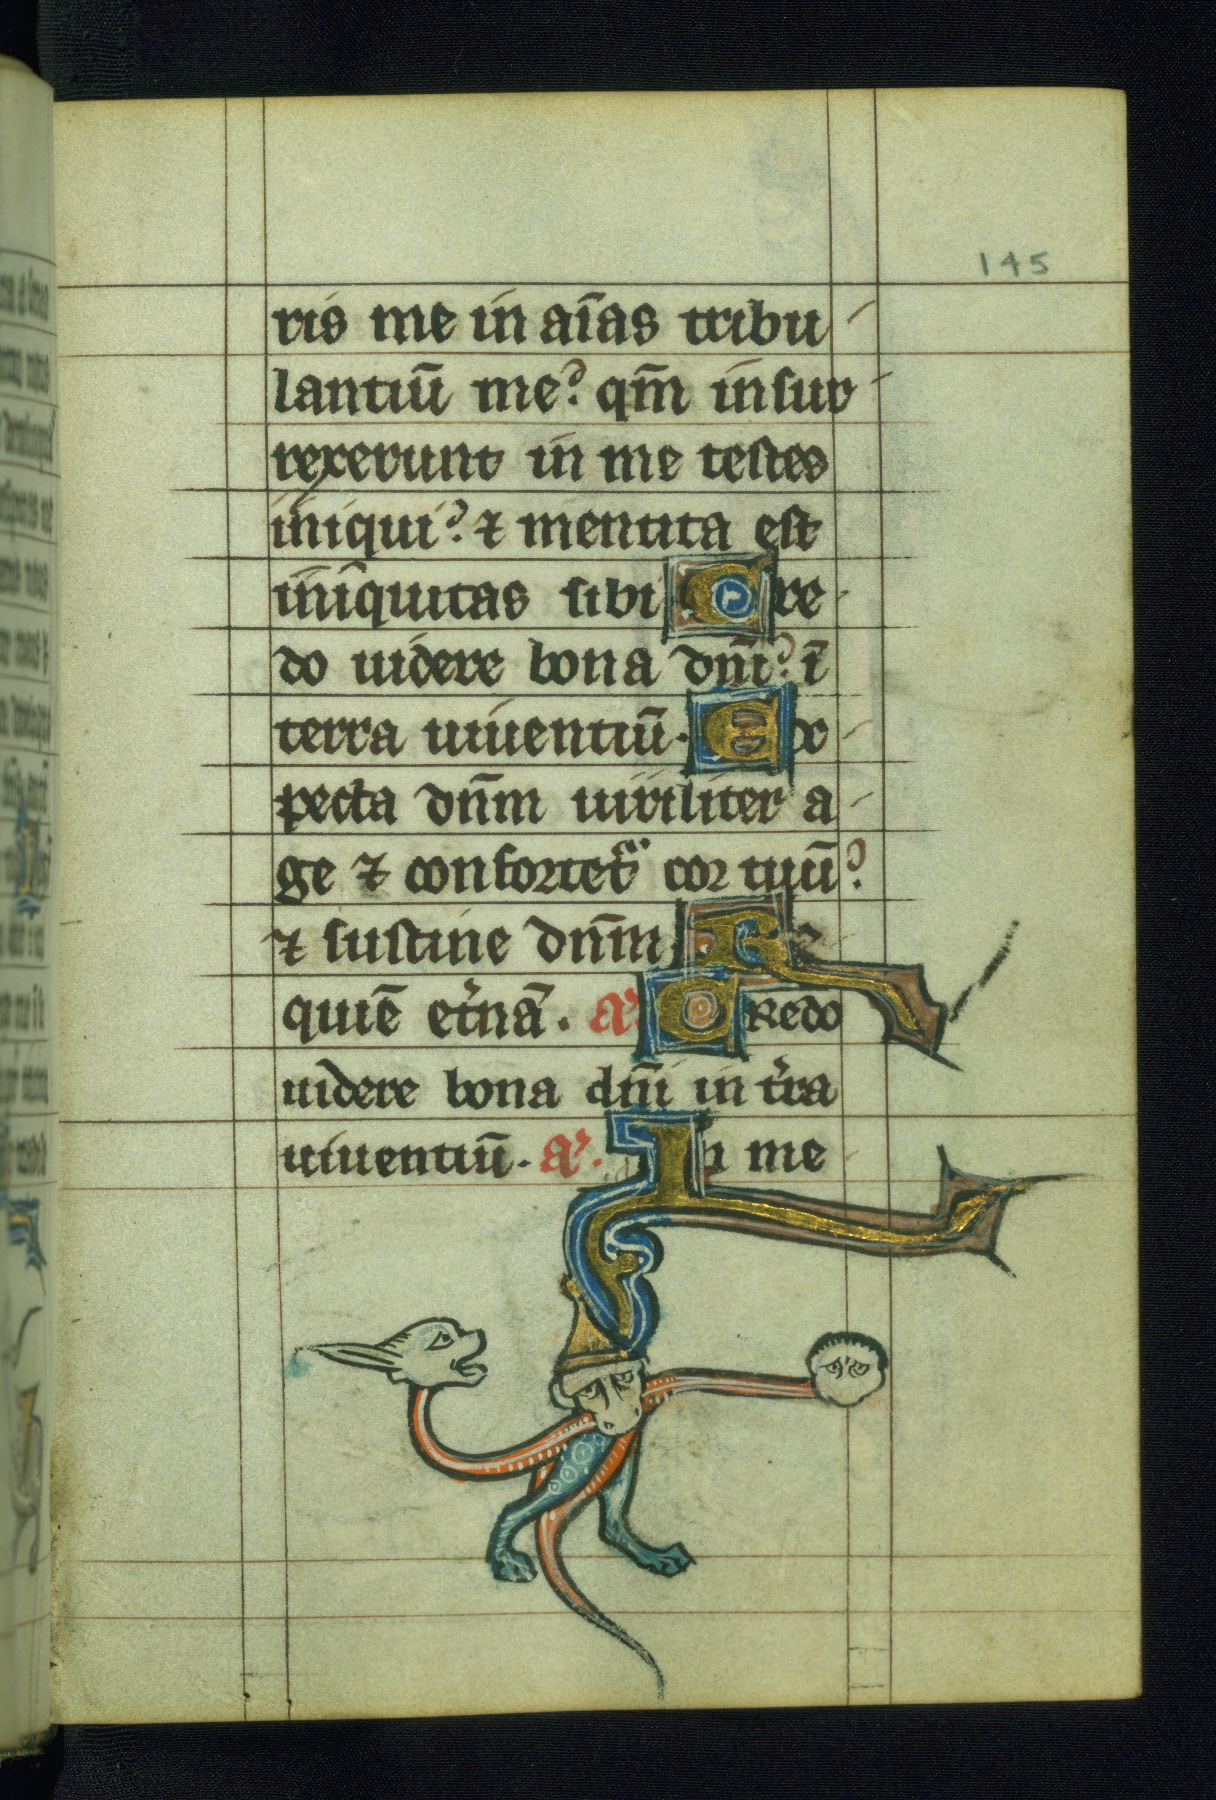 145
ris me in aīas tribu
lantiū me? qm̄ insur
rexerunt in me testes
iniqui? ⁊ mentita est
iniquitas sibi Cre
do uidere bona dn̄i? ī
terra uiuentiū. Ex
pecta dn̄m uiriliter a
ge ⁊ confortetᷣ cor tuū?
⁊ sustine dn̄m. Re
quiē et̾nā. a͛. Credo
uidere bona dn̄i in t̾ra
uiuentiū. a͛. In me